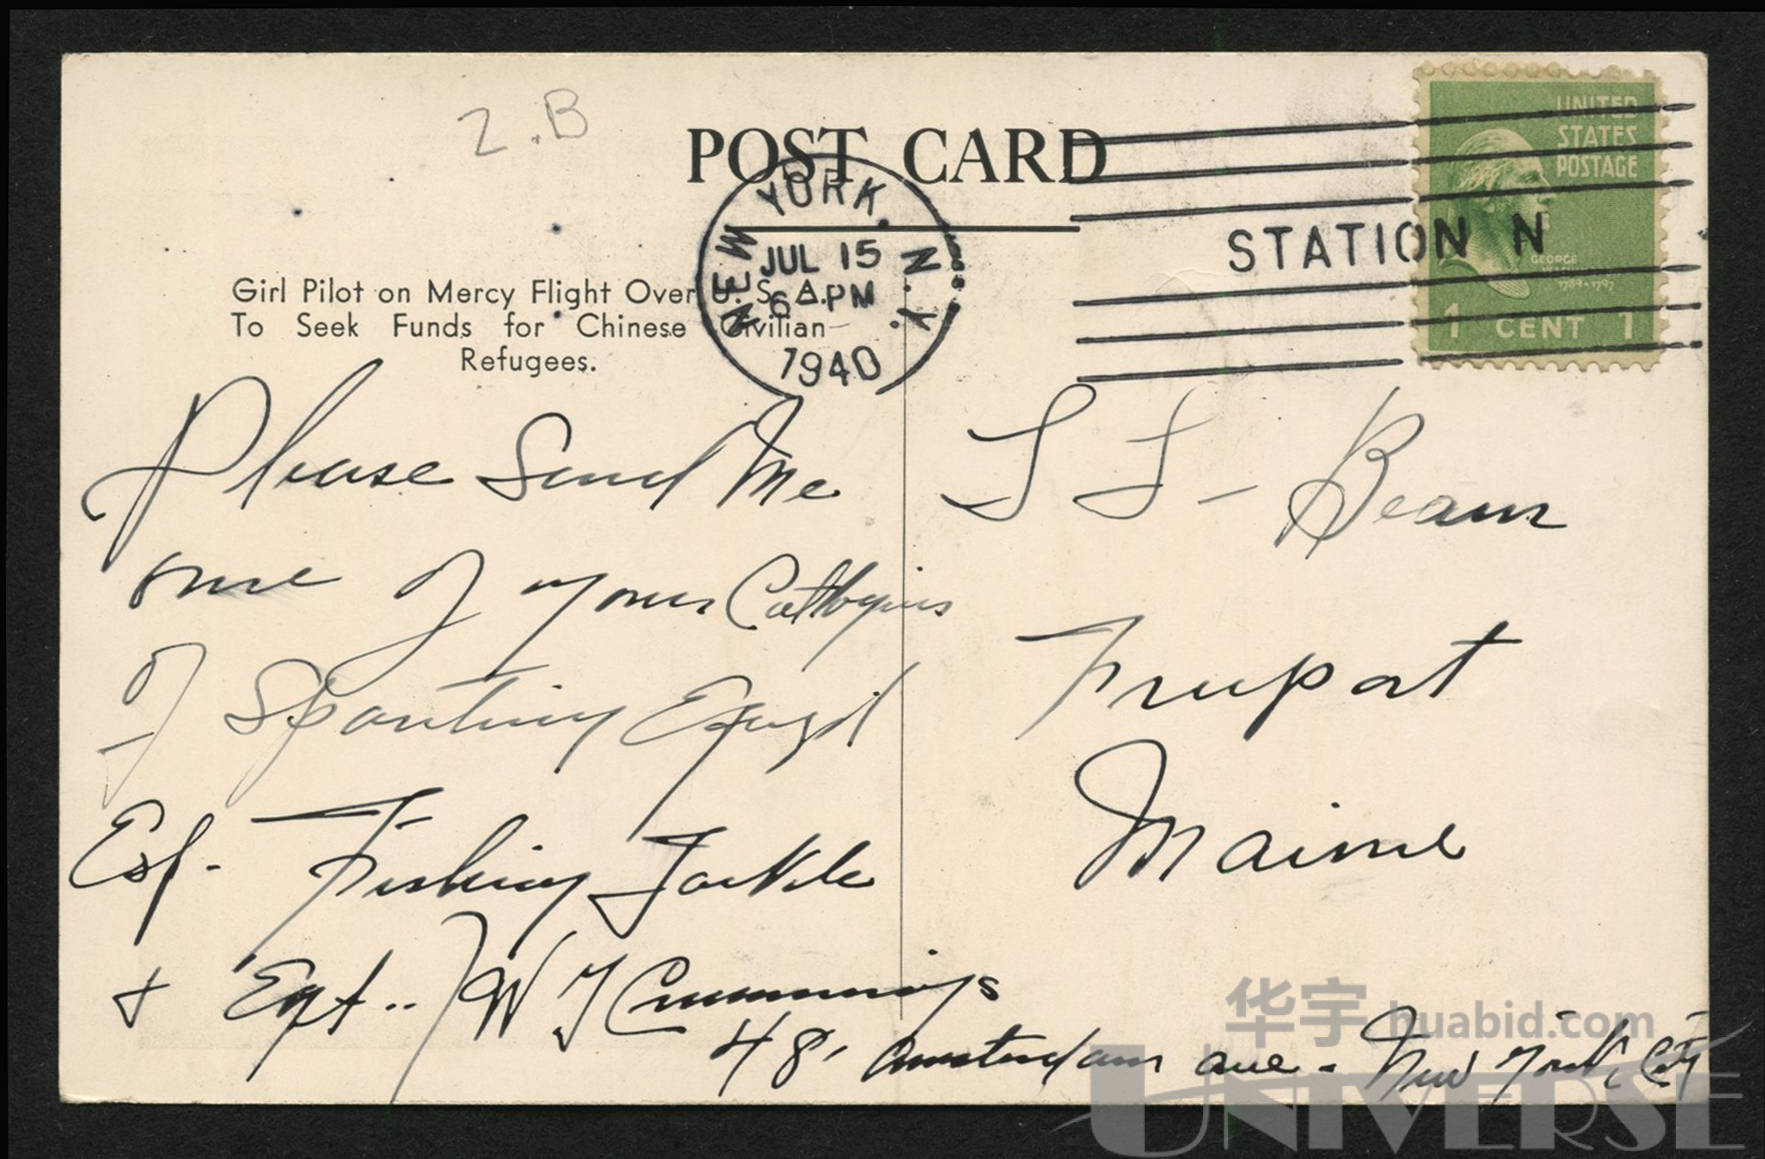 Z.B
POST CARD
NEW YORK, N.Y.
JUL 15
6 PM
1940
STATION N
UNITED
STATES
POSTAGE
GEORGE
1789-1797
1 CENT 1
Girl Pilot on Mercy Flight Over U. S. A.
To Seek Funds for Chinese Civilian
Refugees.
Please Send Me
one of your
of Sporting
Esp. Fishing Tackle
& Eqt.. W J Cummings
48, Amsterdam ave - New York, City
L L - Bean
Freeport
Maine
华宇 huabid.com
UNIVERSE